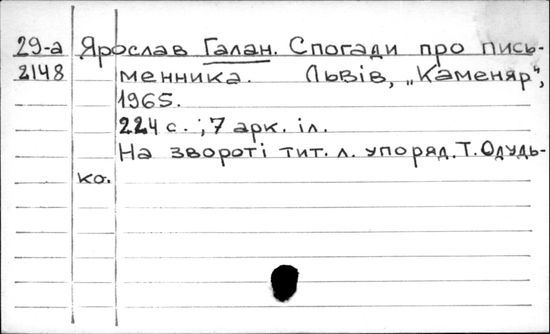 29-а Ярослав Галан. Спогади про пись-
2148 менника. Львів, „Каменяр",
1965.
224 с. ; 7 арк. іл.
На звороті тит. л. упоряд. Т. Одудь-
ко.